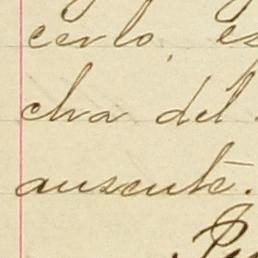 cerlo, es
cha del
ausente.